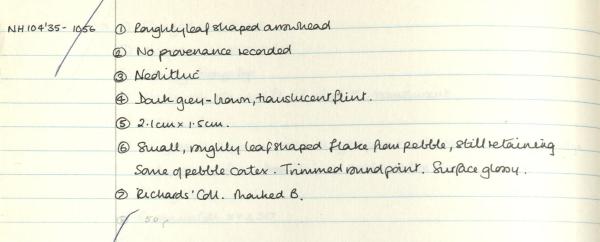 NH104'35-1056 ① Roughly leaf shaped arrowhead
② No provenance recorded
③ Neolithic
④ Dark grey-brown, translucent flint.
⑤ 2.1cm x 1.5cm.
⑥ Small, roughly leaf shaped flake from pebble, still retaining
some of pebble cortex. Trimmed round point. Surface glossy.
⑦ Richards' Coll. Marked B.
50